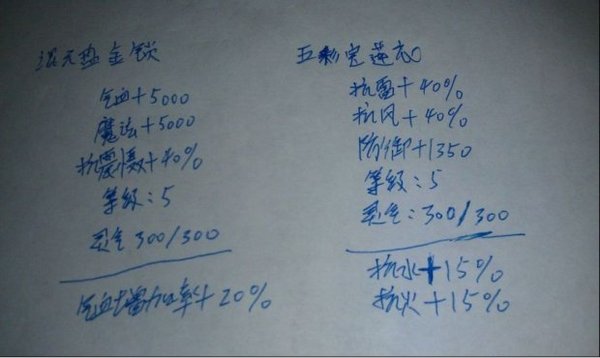 混元盘金锁
气血+5000
魔法+5000
抗震慑+40%
等级:5
灵气300/300
气血增加率+20%
五彩宝莲衣
抗雷+40%
抗风+40%
防御+1350
等级:5
灵气:300/300
抗水+15%
抗火+15%